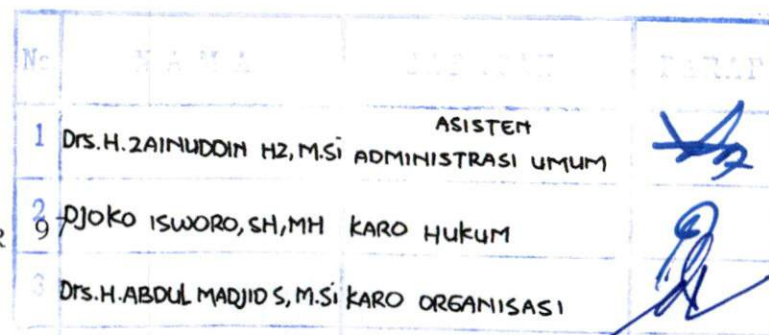 No NAMA JABATAN PARAF
1 Drs.H.ZAINUDDIN HZ, M.Si ASISTEN
ADMINISTRASI UMUM
2 DJOKO ISWORO, SH, MH KARO HUKUM
R 9
3 Drs.H.ABDUL MADJID S, M.Si KARO ORGANISASI